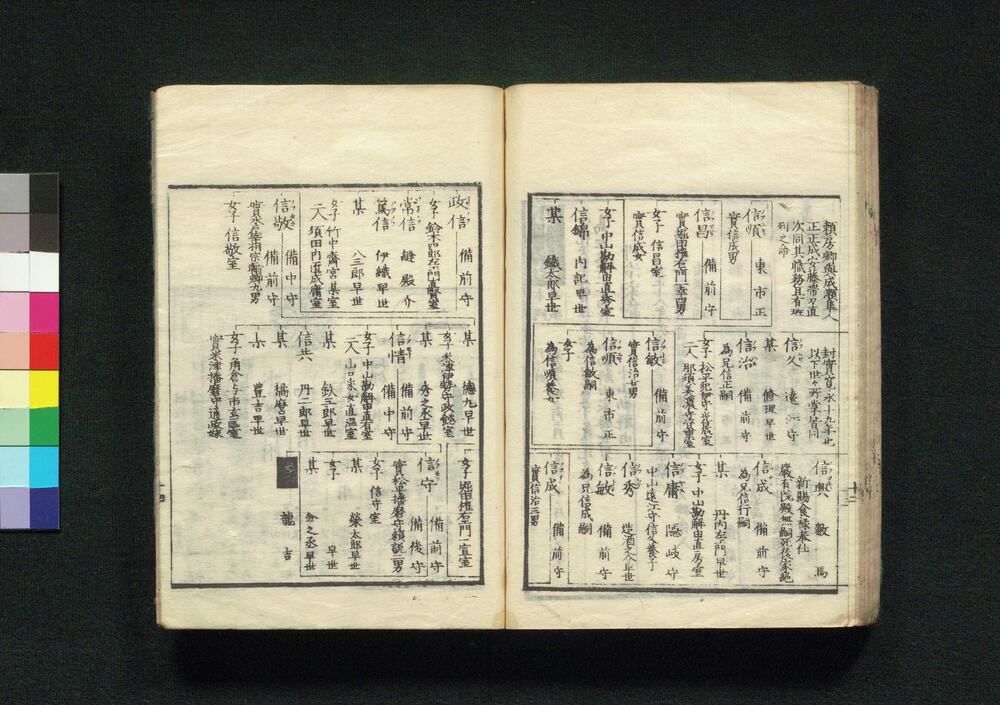 頼房卿与成瀬隼人
正正成安藤帯刀直
次同其職務且有班
列之命
信順 東市正
實信成男
信昌 備前守
實堀田権右衛門一幸四男
女子 信昌室
實信成女
女子 中山勘解由直秀室
信錦 内記早世
某 鐵太郎早世
封實寛永十九年也
以下世々所掌皆同
信久 遠江守
某 修理早世
信治 備前守
為兄信正嗣
女子 松平紀伊守光晟室
二人 那須美濃守資重室
信敏 備前守
實信治七男
信順 東市正
為信敏嗣
女子
為信順養女
信興 數馬
新賜食禄奉仕
嚴有院殿無嗣死後家絶
信成 備前守
為兄信行嗣
某 丹内左門早世
女子 中山勘解由直房室
信庸 隠岐守
中山遠江守信久養子
信秀 造酒之介早世
信敏 備前守
為兄信成嗣
信成 備前守
實信治三男
政信 備前守
女子 鈴木四郎左衛門重賢室
常信 縫殿介
篤信 伊織早世
某 八三郎早世
女子 竹中齋宮某室
二人 須田内匠成庸室
信敬 備中守
實水戸宰相宗翰卿九男
女子 信敬室
某 徳九早世
女子 米津伊勢守政懿室
某 秀之丞早世
信情 備前守
備中守
女子 中山勘解由直有室
二人 山口采女直温室
某 鉄三郎早世
信共 丹三郎早世
某 橘麿早世
某 豊吉早世
女子 角倉与市玄匡室
實米津播磨守通政妹
女子 堀田権右衛門一宣室
信守 備前守
備後守
實松平播磨守頼説二男
女子 信守室
某 榮太郎早世
女子 早世
某 金之丞早世
龍吉